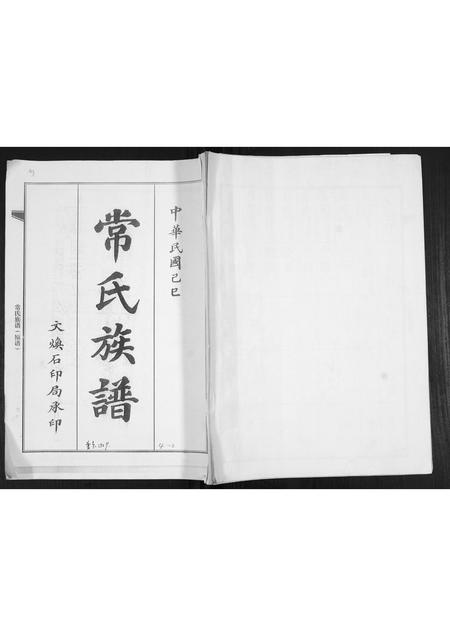 中華民國己巳
常氏族譜
文煥石印局承印
常氏族谱（
4-2